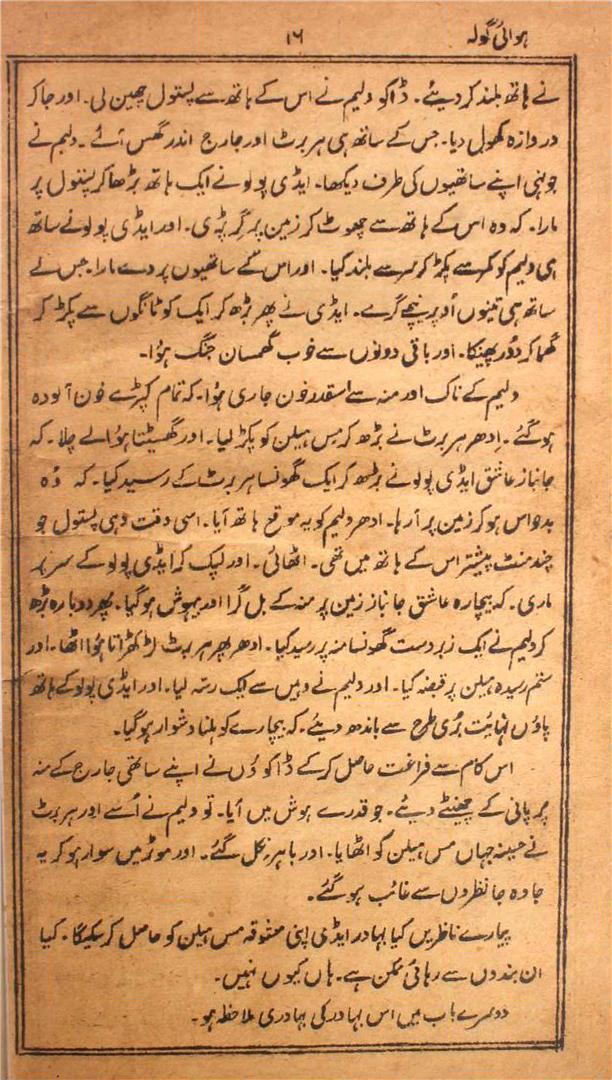 ہوائی گولہ
۱۶
نے ہاتھ بلند کر دیئے۔ ڈاکو ولیم نے اس کے ہاتھ سے پستول چھین لی۔ اور جا کر
دروازہ کھول دیا۔ جس کے ساتھ ہی ہربرٹ اور جارج اندر گھس آئے۔ ولیم نے
جونہی اپنے ساتھیوں کی طرف دیکھا۔ ایڈی پولو نے ایک ہاتھ بڑھا کر پستول پر
مارا۔ کہ وہ اس کے ہاتھ سے چھوٹ کر زمین پر گر پڑی۔ اور ایڈی پولو نے ساتھ
ہی ولیم کو کمر سے پکڑ کر سر سے بلند کیا۔ اور اس کے ساتھیوں پر دے مارا۔ جس کے
ساتھ ہی تینوں اُوپر نیچے گرے۔ ایڈی نے پھر بڑھ کر ایک کو ٹانگوں سے پکڑ کر
گھما کر دُور پھینکا۔ اور باقی دونوں سے خوب گھمسان جنگ ہؤا۔
ولیم کے ناک اور منہ سے اسقدر خون جاری ہؤا۔ کہ تمام کپڑے خون آلودہ
ہو گئے۔ اِدھر ہربرٹ نے بڑھ کر مس ہیلن کو پکڑ لیا۔ اور گھسیٹتا ہؤا لے چلا۔ کہ
جانباز عاشق ایڈی پولو نے بڑھ کر ایک گھونسا ہربرٹ کے رسید کیا۔ کہ وُہ
بدواس ہو کر زمین پر آ رہا۔ ادھر ولیم کو یہ موقع ہاتھ آیا۔ اسی وقت وہی پستول جو
چند منٹ پیشتر اس کے ہاتھ میں تھی۔ اٹھائی۔ اور لپک کر ایڈی پولو کے سر پر
ماری۔ کہ بیچارہ عاشق جانباز زمین پر منہ کے بل گرا اور بیہوش ہو گیا۔ پھر دوبارہ بڑھ
کر ولیم نے ایک زبردست گھونسا منہ پر رسید کیا۔ ادھر پھر ہربرٹ لڑکھڑاتا ہؤا اٹھا۔ اور
ستم رسیدہ ہیلن پر قبضہ کیا۔ اور ولیم نے وہیں سے ایک رسہ لیا۔ اور ایڈی پولو کے ہاتھ
پاؤں نہائت بُری طرح سے باندھ دیئے۔ کہ بیچارے کو ہلنا دشوار ہو گیا۔
اس کام سے فراغت حاصل کر کے ڈاکوؤں نے اپنے ساتھی جارج کے منہ
پر پانی کے چھینٹے دیئے۔ جو قدرے ہوش میں آیا۔ تو ولیم نے اُسے اور ہربرٹ
نے حسینہ جہاں مس ہیلن کو اٹھایا۔ اور باہر نکل گئے۔ اور موٹر میں سوار ہو کر یہ
جا وہ جا نظروں سے غائب ہو گئے۔
پیارے ناظریں کیا بہادر ایڈی اپنی معشوقہ مس ہیلن کو حاصل کر سکیگا۔ کیا
ان بندوں سے رہائی ممکن ہے۔ ہاں کیوں نہیں۔
دوسرے باب میں اس بہادر کی بہادری ملاحظہ ہو۔